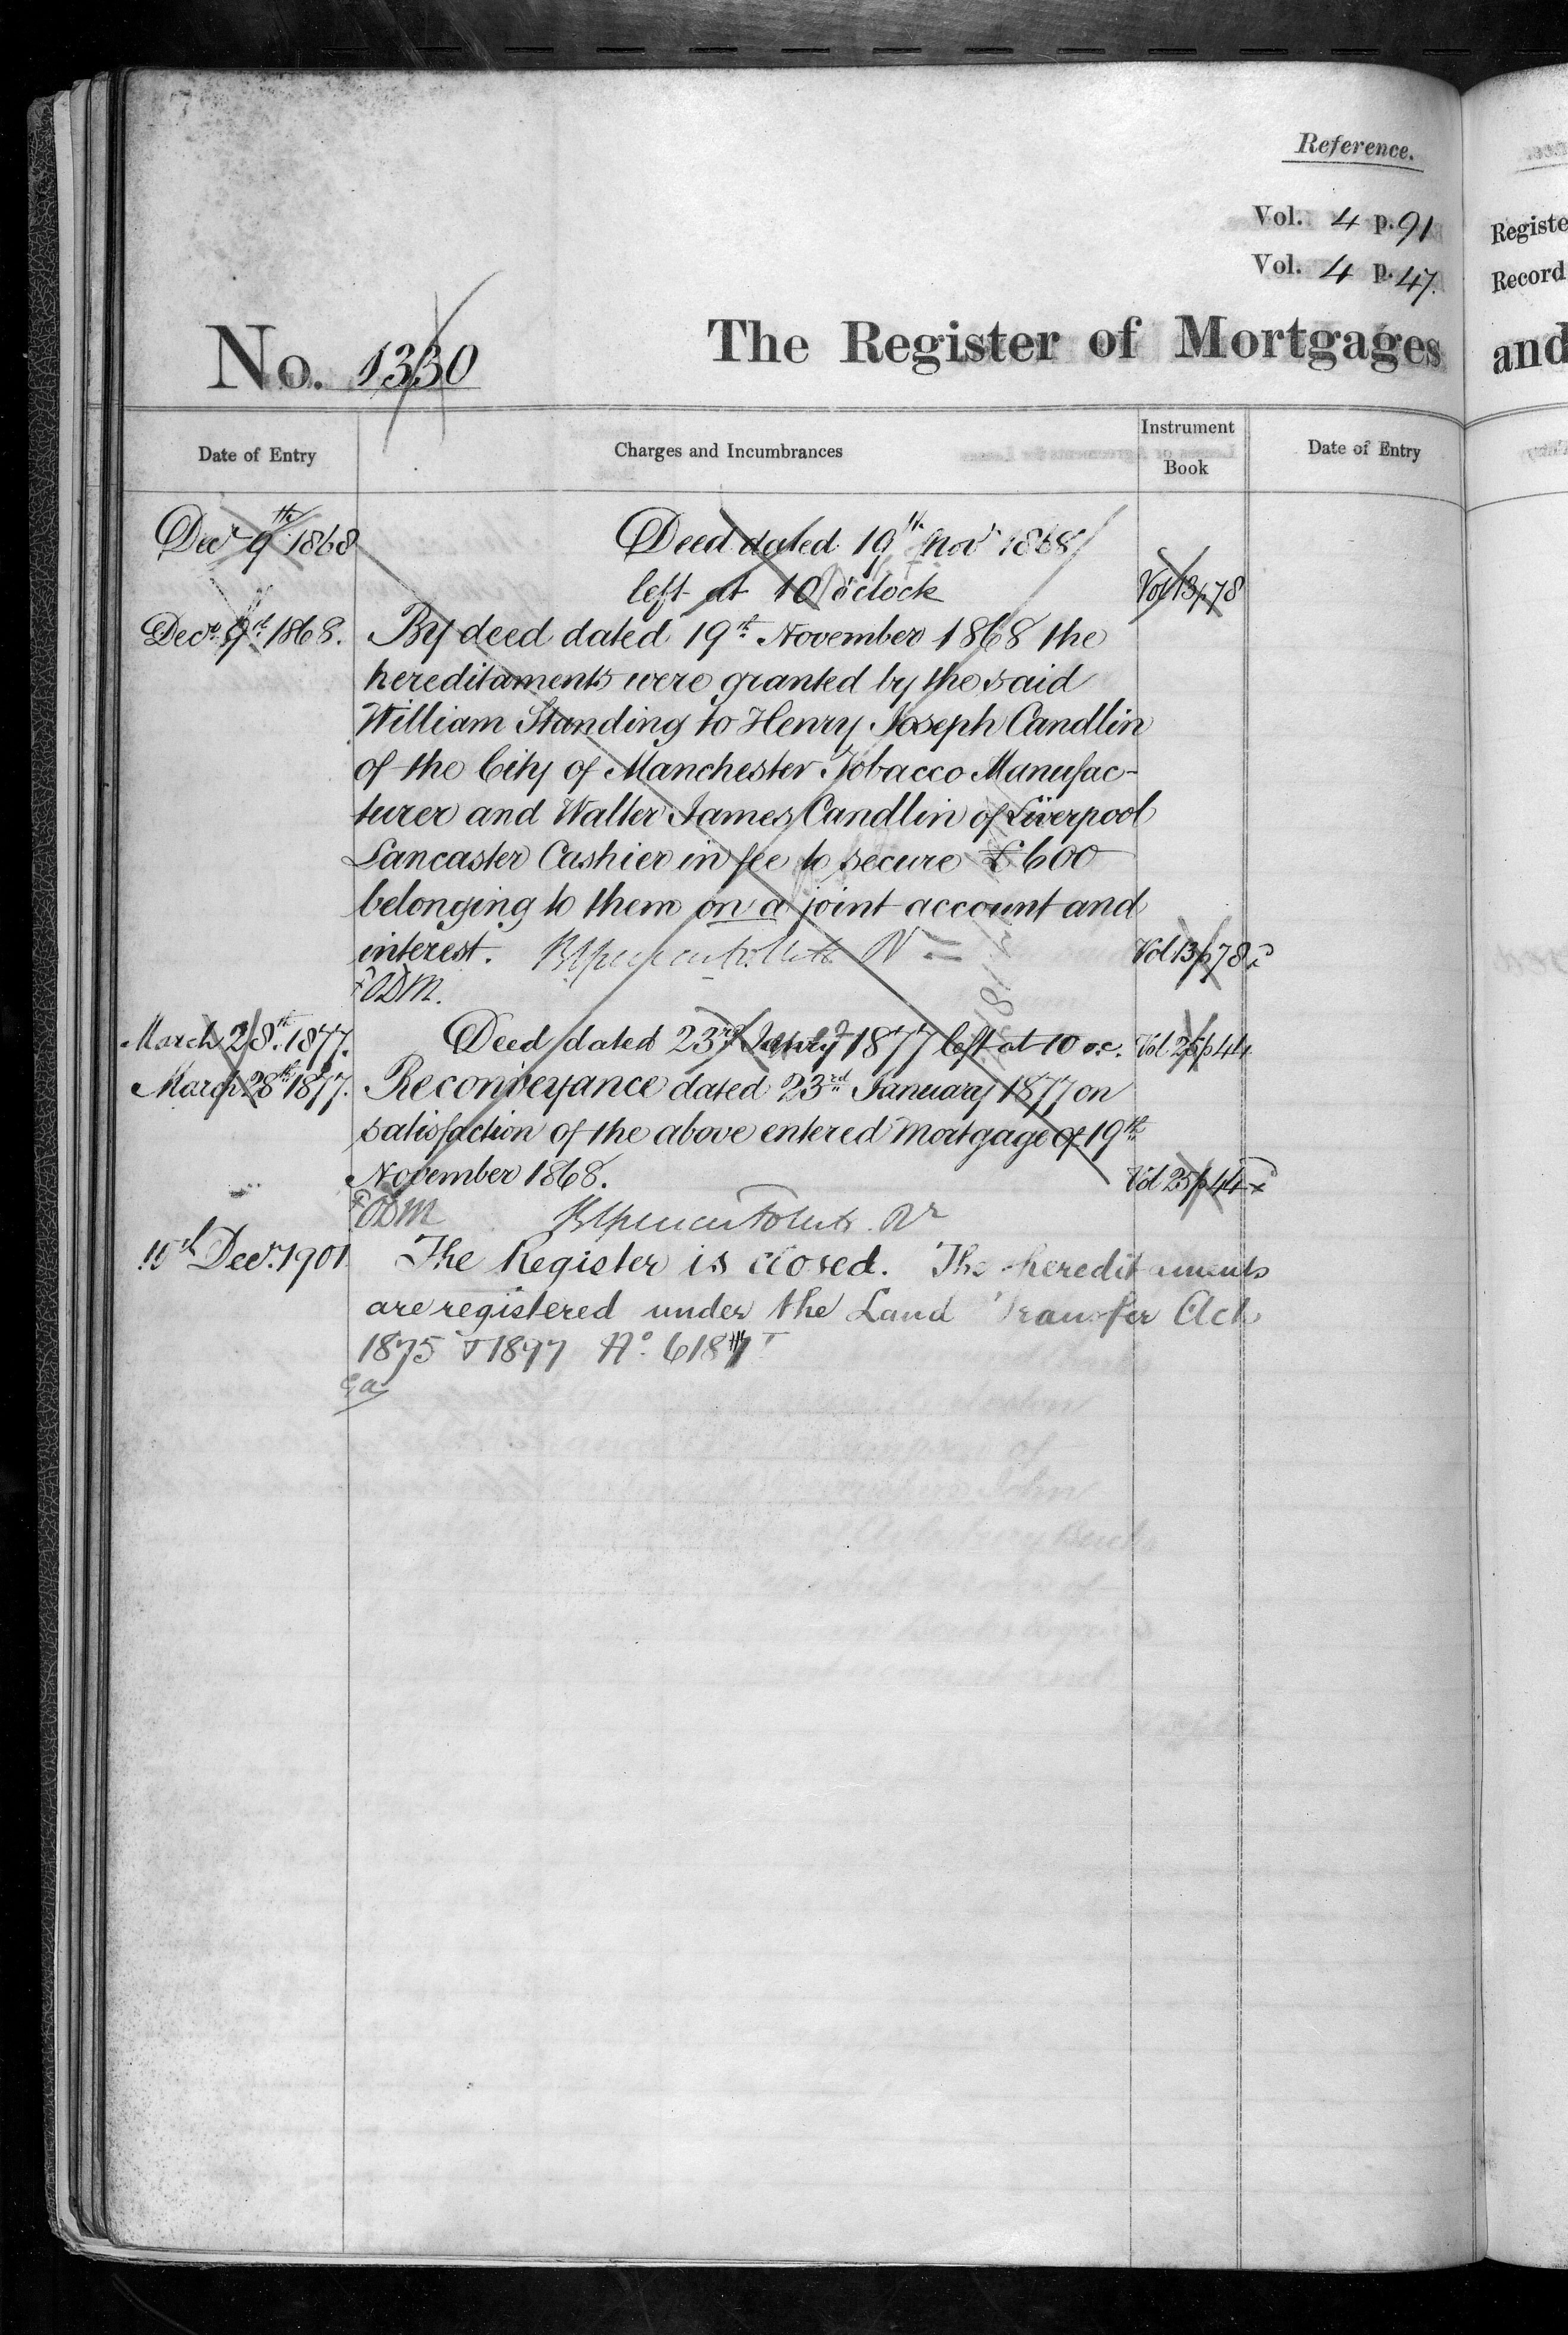 Reference.
Vol. 4 p. 91
Vol. 4 p. 47.
No. 1330 The Register of Mortgages
Date of Entry Charges and Incumbrances Instrument Book Date of Entry
Decr 9th 1868 Deed dated 19th Novr 1868
left at 10 o'clock Vol 13 p 78
Decr. 9th 1868. By deed dated 19th November 1868 the
hereditaments were granted by the said
William Standing to Henry Joseph Candlin
of the City of Manchester Tobacco Manufac-
turer and Walter James Candlin of Liverpool
Lancaster Cashier in fee to secure £600
belonging to them on a joint account and
interest. Vol 13 p 78
ODM.
March 28th. 1877. Deed dated 23rd 1877 left at 10 o.c. Vol 25 p 44
March 28th 1877. Reconveyance dated 23rd January 1877 on
satisfaction of the above entered Mortgage of 19th
November 1868. Vol 25 p 44
ODM
Decr. 1901 The Register is closed. The hereditaments
are registered under the Land Transfer Acts
1875 & 1897 No.
Registe
Record
and